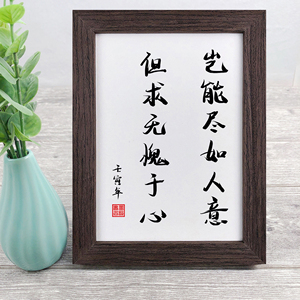 岂能尽如人意
但求无愧于心
壬寅年